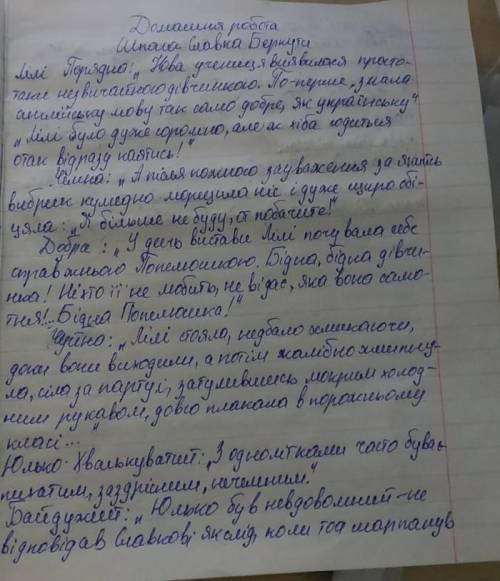 Домашня робота
Шпага Славка Беркути
Лілі Порядна: „Нова учениця виявилася просто-
таки незвичайною дівчинкою. По-перше, знала
англійську мову так само добре, як українську"
„Лілі було дуже соромно, але ж хіба годиться
отак відразу каятись!"
Чемна: „А після кожного зауваження за якийсь
вибрик кумедно морщила ніс і дуже щиро обі-
цяла: „Я більше не буду, от побачите!"
Добра: „У день вистави Лілі почувала себе
справжньою Попелюшкою. Бідна, бідна дівчи-
нка! Ніхто її не любить, не відає, яка вона само-
тня!.. Бідна Попелюшка!"
„Лілі стояла, недбало хмикаючи,
доки вони виходили, а потім жалібно хлипну-
ла, сіла за парту і, затулившись мокрим холод-
ним рукавом, довго плакала в порожньому
класі...
Юлько Хвалькуватий: „З однолітками часто бував
пихатим, заздрісним, нечемним."
Байдужий: „Юлько був невдоволений – не
відповідав Славкові як слід, коли той шарпанув